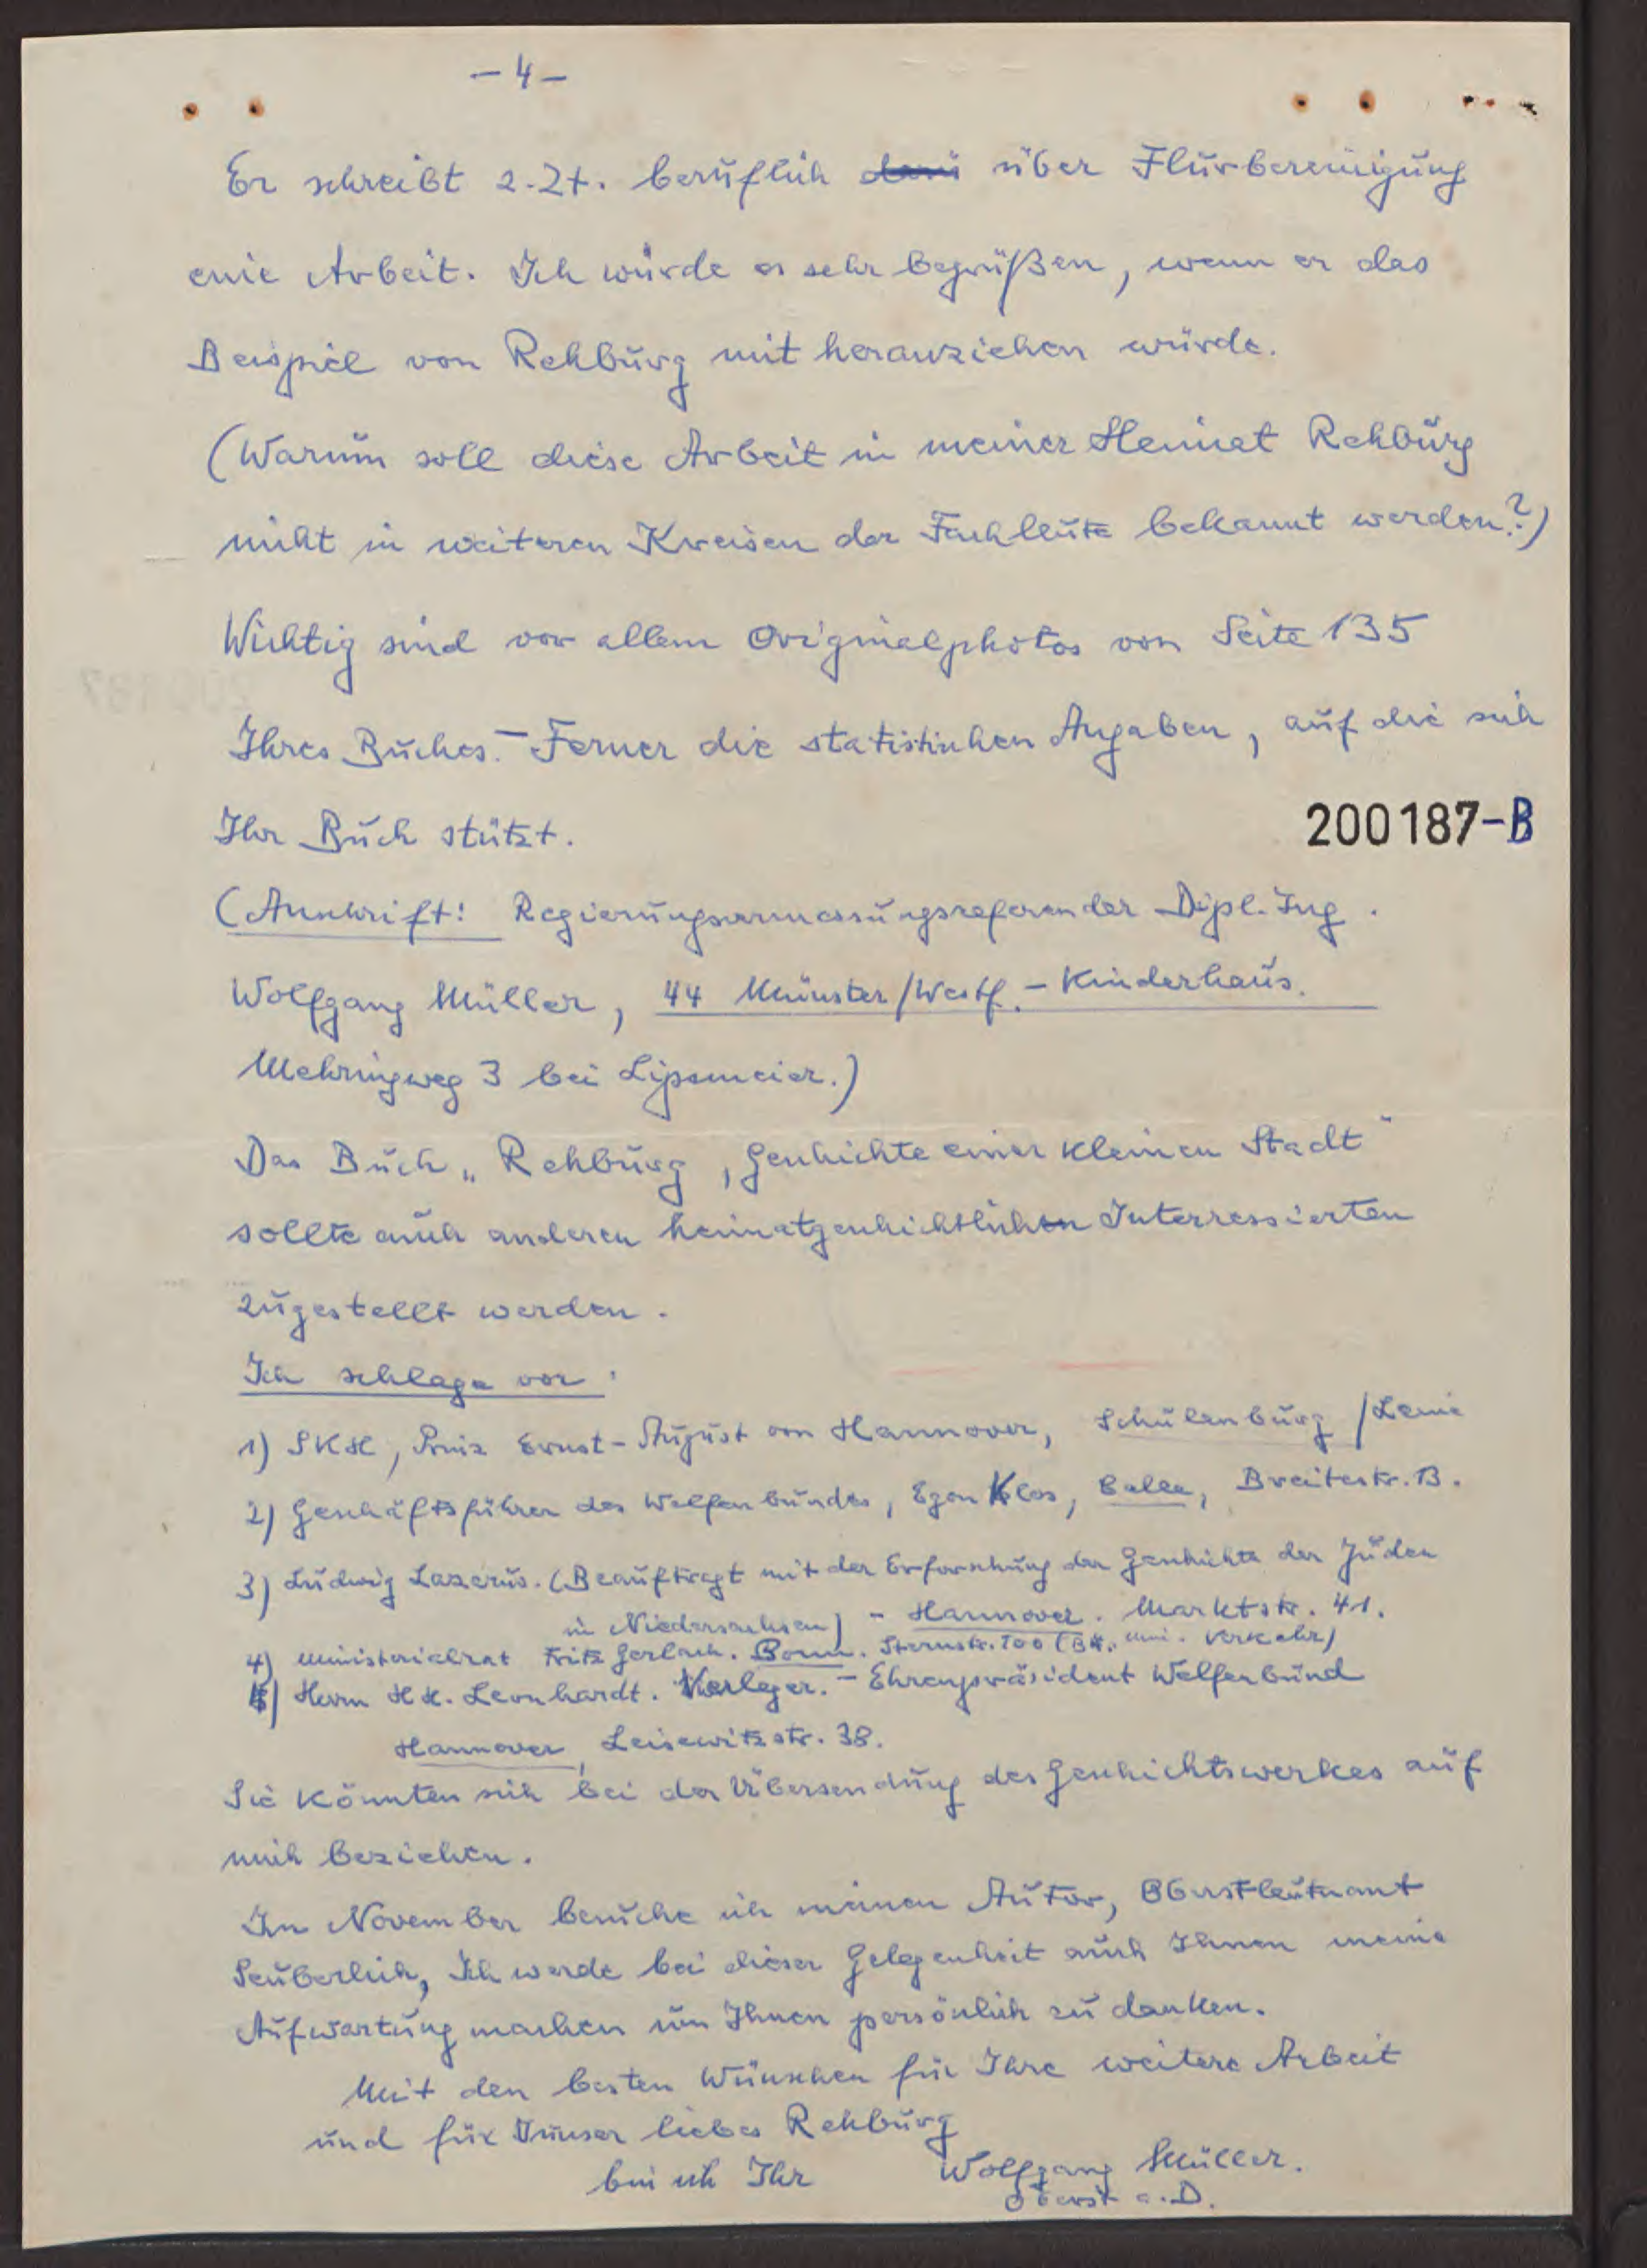 - 4 -
Er schreibt z. Zt. beruflich über Flurbereinigung
eine Arbeit. Ich würde es sehr begrüßen, wenn er das
Beispiel von Rehburg mit heranziehen würde.
(Warum soll diese Arbeit in meiner Heimat Rehburg
nicht in weiteren Kreisen der Fachleute bekannt werden?)
Wichtig sind vor allem Originalphotos von Seite 135
Ihres Buches. - Ferner die statistischen Angaben, auf die sich
Ihr Buch stützt.
200187-B
(Anschrift: Regierungsvermessungsreferendar Dipl. Ing.
Wolfgang Müller, 44 Münster/Westf. - Kinderhaus.
Mehringweg 3 bei Lipsmeier.)
Das Buch „Rehburg, Geschichte einer kleinen Stadt"
sollte auch anderen heimatgeschichtlich Interressierten
zugestellt werden.
Ich schlage vor:
1) SKH, Prinz Ernst-August von Hannover, Schulenburg/Leine
2) Geschäftsführer des Welfenbundes, Egon Klos, Celle, Breitestr. 13.
3) Ludwig Lazarus. (Beauftragt mit der Erforschung der Geschichte der Juden
in Niedersachsen) - Hannover. Marktstr. 41.
4) Ministerialrat Fritz Gerlach. Bonn. Sternstr. 100 (B. Min. Verkehr)
5) Herrn H.H. Leonhardt. Verleger. - Ehrenpräsident Welfenbund
Hannover, Leisewitzstr. 38.
Sie könnten sich bei der Übersendung des Geschichtswerkes auf
mich beziehen.
Im November besuche ich meinen Autor, Oberstleutnant
Seuberlich, Ich werde bei dieser Gelegenheit auch Ihnen meine
Aufwartung machen um Ihnen persönlich zu danken.
Mit den besten Wünschen für Ihre weitere Arbeit
und für Unser liebes Rehburg
bin ich Ihr Wolfgang Müller.
Oberst a.D.